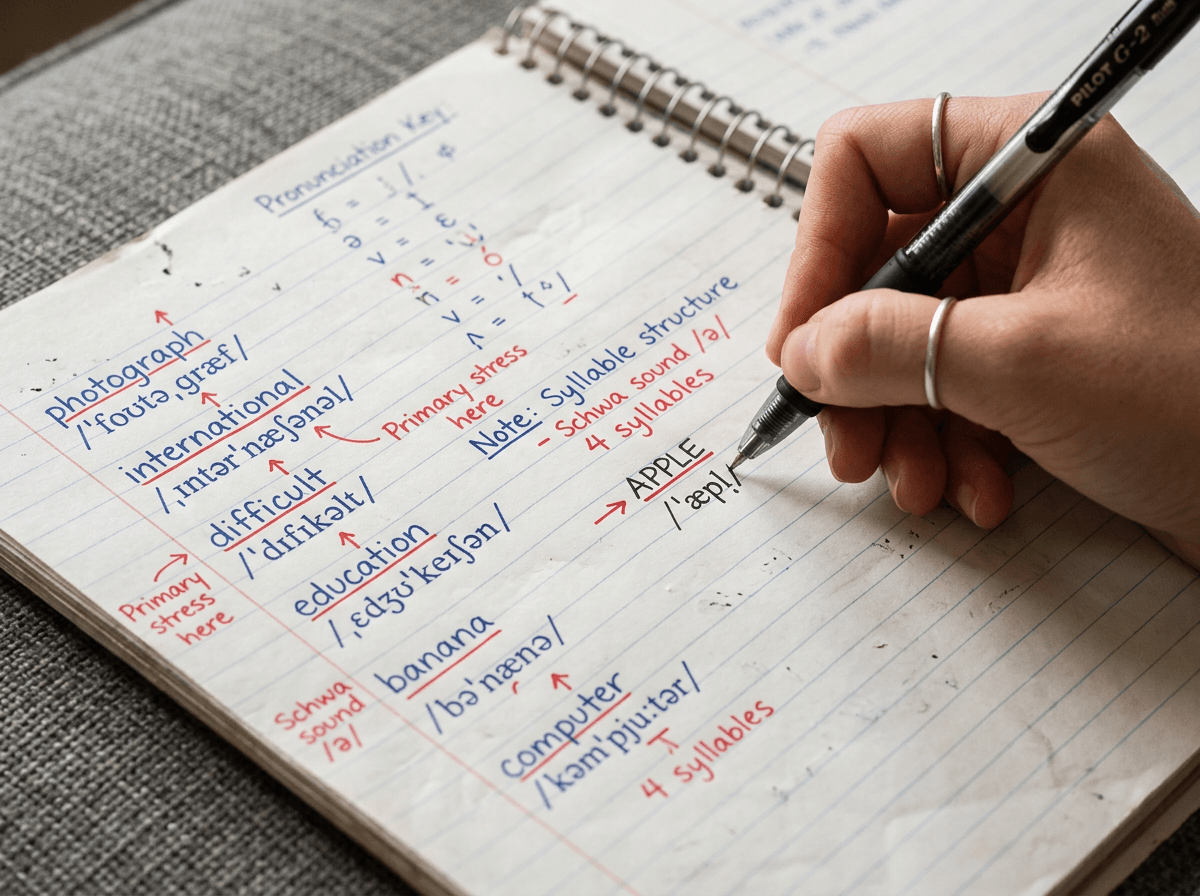 Pronunciation Key:
photograph
/ˈfoʊtəˌɡræf/
international
/ˌɪntərˈnæʃənəl/
Primary stress
here
difficult
/ˈdɪfɪkəlt/
education
/ˌɛdʒʊˈkeɪʃən/
Primary
stress
here
banana
/bəˈnænə/
Schwa
sound
/ə/
computer
/kəmˈpjuːtər/
4 syllables
Note: Syllable structure
- Schwa sound /ə/
4 syllables
APPLE
/ˈæpl̩/
PILOT G-2